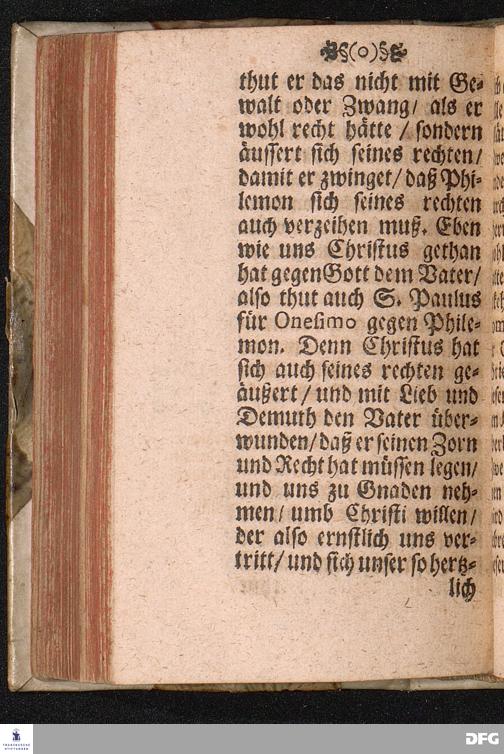 §(o)§
thut er das nicht mit Ge-
walt oder Zwang/ als er
wohl recht hätte / sondern
äussert sich seines rechten/
damit er zwinget/ daß Phi-
lemon sich seines rechten
auch verzeihen muß. Eben
wie uns Christus gethan
hat gegen Gott dem Vater/
also thut auch S. Paulus
für Onesimo gegen Phile-
mon. Denn Christus hat
sich auch seines rechten ge-
äußert / und mit Lieb und
Demuth den Vater über-
wunden/ daß er seinen Zorn
und Recht hat müssen legen/
und uns zu Gnaden neh-
men/ umb Christi willen/
der also ernstlich uns ver-
tritt/ und sich unser so hertz-
lich
FRANCKESCHE
STIFTUNGEN
DFG